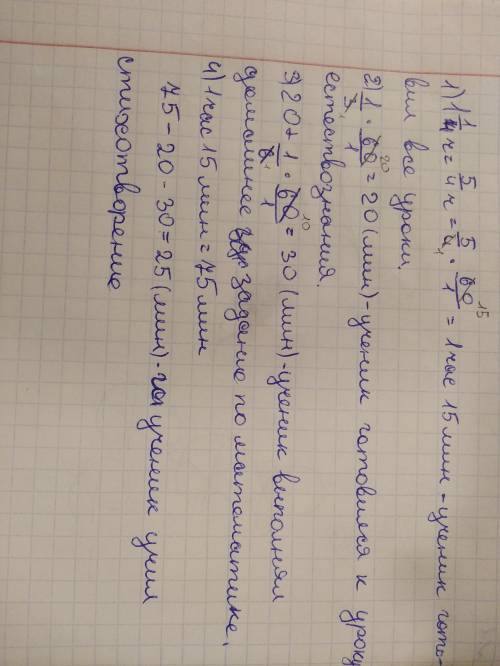 1) 1 1/4 ч = 5/4 ч = 5/4 · 60/1 = 1 час 15 мин - ученик гото-
вил все уроки.
2) 1/3 · 60/1 = 20 (мин) - ученик готовился к уроку
естествознания.
3) 20 + 1/6 · 60/1 = 30 (мин) - ученик выполнял
домашнее задание по математике.
4) 1 час 15 мин = 75 мин
75 - 20 - 30 = 25 (мин) - ученик учил
стихотворение